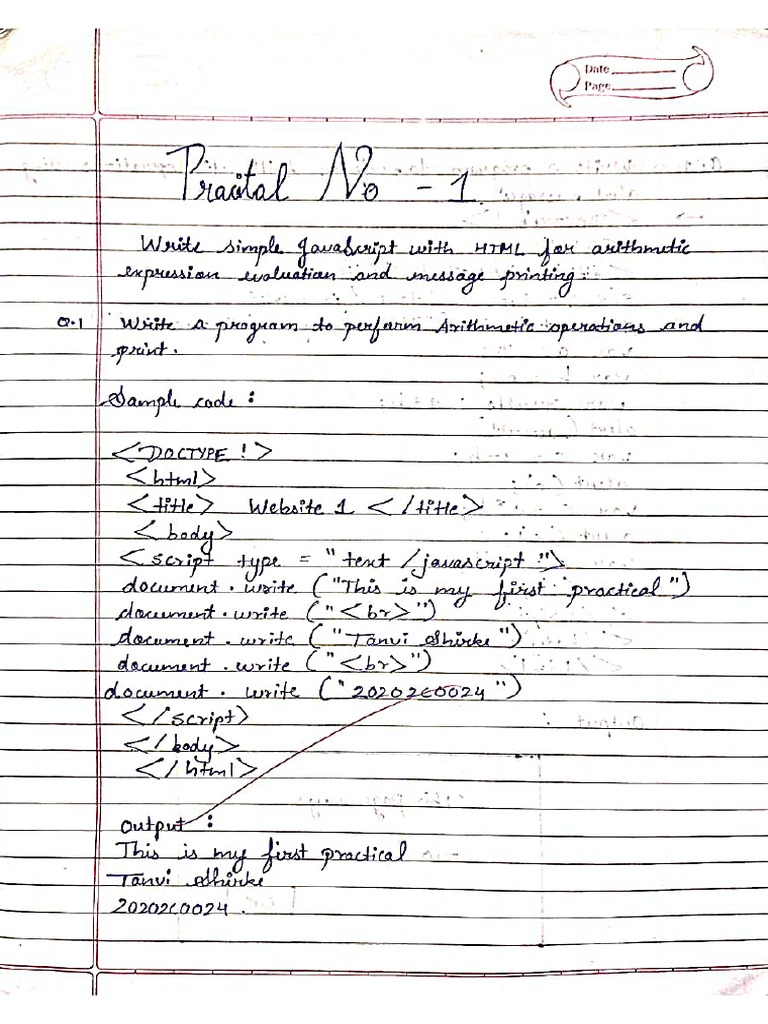 Date
Page
Pracital No - 1
Write simple JavaScript with HTML for arithmetic
expression evaluation and message printing.
Q.1 Write a program to perform Arithmetic operations and
print.
Sample code :
<DOCTYPE !>
<html>
<title> Website 1 </title>
<body>
<script type = "text /javascript ">
document. write ("This is my first practical")
document. write ("<br>")
document. write ("Tanvi Shirke")
document. write ("<br>")
document. write ("202020024")
</script>
</body>
</html>
Output :
This is my first practical
Tanvi Shirke